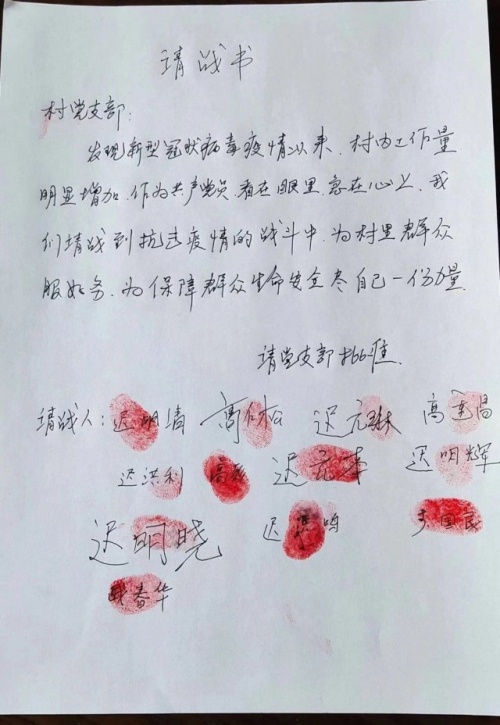 请战书
村党支部:
发现新型冠状病毒疫情以来，村内工作量
明显增加，作为共产党员，看在眼里，急在心上，我
们请战到抗击疫情的战斗中，为村里群众
服务，为保障群众生命安全尽自己一份力量.
请党支部批准.
请战人: 迟明清 迟元琳
迟洪利 迟明辉
迟明晓 迟
春华